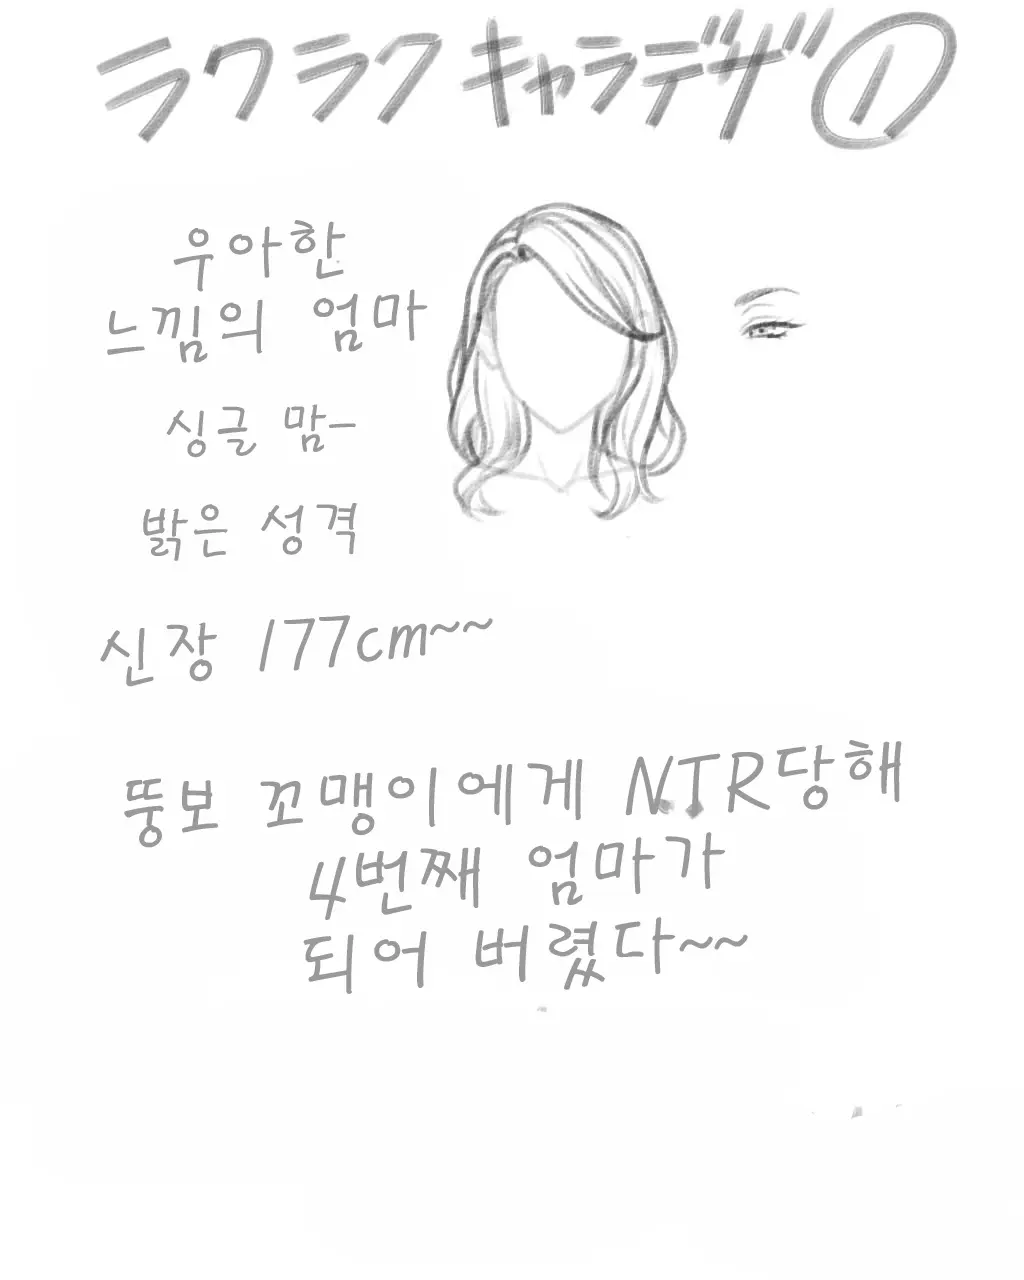 ラクラクキャラデザ①
우아한
느낌의 엄마
싱글 맘-
밝은 성격
신장 177cm~~
뚱보 꼬맹이에게 NTR당해
4번째 엄마가
되어 버렸다~~